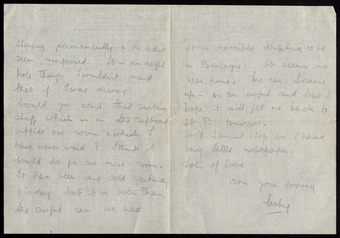 staying permanently & he didn't
seem surprised. It is an awful
hole though I wouldn't mind
that if I was driving.
Would you send that curtain
stuff which is in the cupboard
outside our room & which I
have never used? I think it
would do for our mess room.
It has been very cold yesterday
& today but it is better than
the awful rain we had.
It is horribly tempting to be
in Boulogne. It seems so
was home. The car I came
up in is an awful one but I
hope it will get me back to
St P. tomorrow.
Well I must stop as I have
very little notepaper.
Lots of love
from your loving